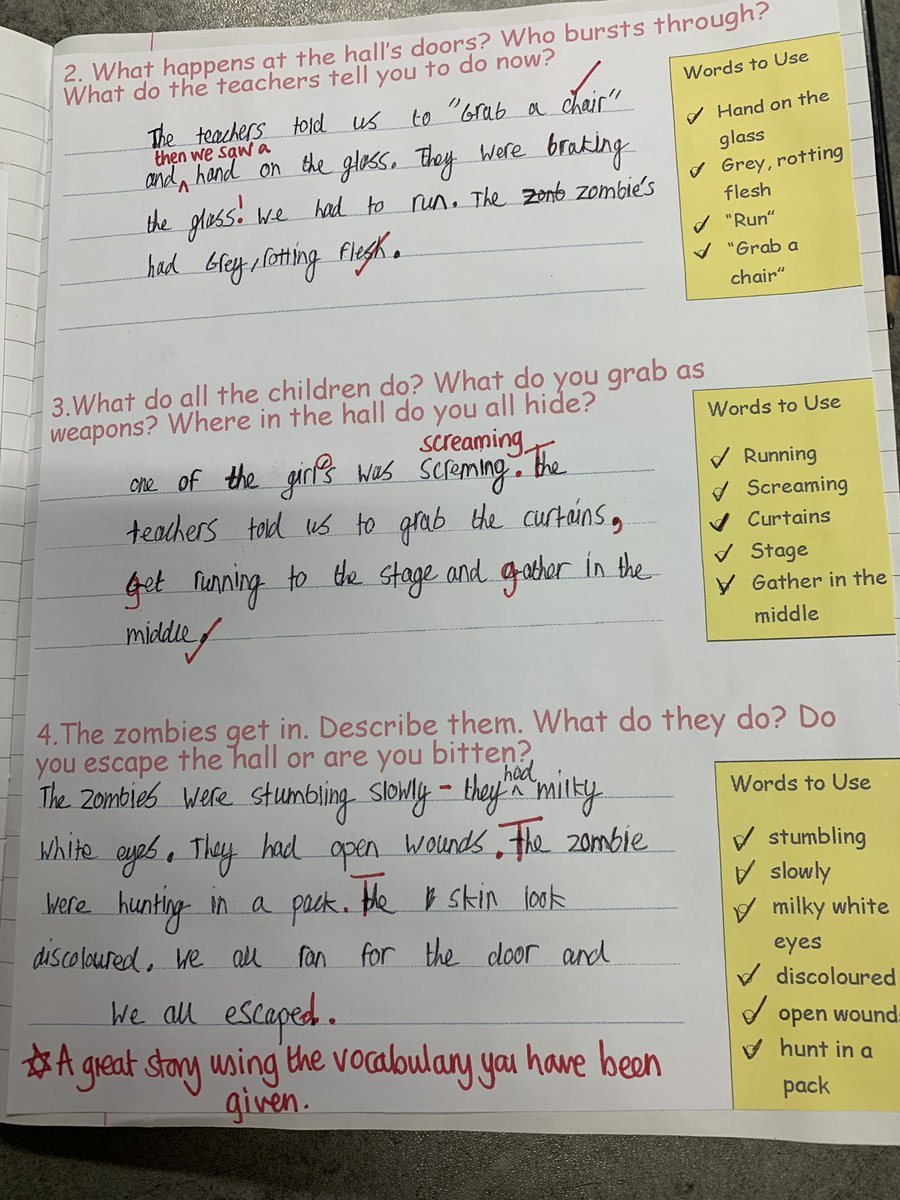 2. What happens at the hall's doors? Who bursts through?
What do the teachers tell you to do now?
The teachers told us to "Grab a chair"
then we saw a
and ^ hand on the glass. They were braking
the glass! We had to run. The zomb zombie's
had Grey, rotting flesh.
Words to Use
Hand on the
glass
Grey, rotting
flesh
"Run"
"Grab a
chair"
3.What do all the children do? What do you grab as
weapons? Where in the hall do you all hide?
screaming
one of the girl's was screming. The
teachers told us to grab the curtains,
get running to the stage and gather in the
middle.
Words to Use
Running
Screaming
Curtains
Stage
Gather in the
middle
4.The zombies get in. Describe them. What do they do? Do
you escape the hall or are you bitten?
had
The zombies were stumbling slowly - they ^ milky
white eyes. They had open wounds. The zombie
were hunting in a pack. The skin look
discoloured. We all ran for the door and
we all escaped.
Words to Use
stumbling
slowly
milky white
eyes
discoloured
open wound
hunt in a
pack
A great story using the vocabulary you have been
given.